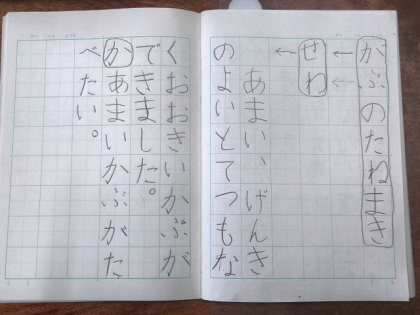 がぶのたねまき
せわ
あまい、げんき
のよいとてつもな
くおおきいかぶが
できました。
かあまいかぶがた
べたい。